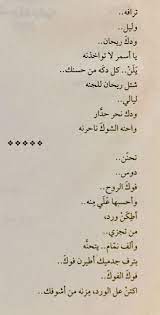 ترافه..
وليل..
ودك ريحان..
يا أسمر لا تواخذنه
يَلَنْ.. كل دكه من حسنك..
شتل ريحان للجنه
ليالي..
ودك نحر حدّار
واحنه الشوك ناحرنه
*****
تحنّن..
دوس..
فوك الروح..
وأحسبها عَلَي مِنه..
أطكَنْ ورد،
من تجزي..
وألف نمّام.. يتحنّه
يترف جدميك أطيرن فوك..
فوك الفوك..
اكتنْ عل الورد، مِزنه من أشوفك..